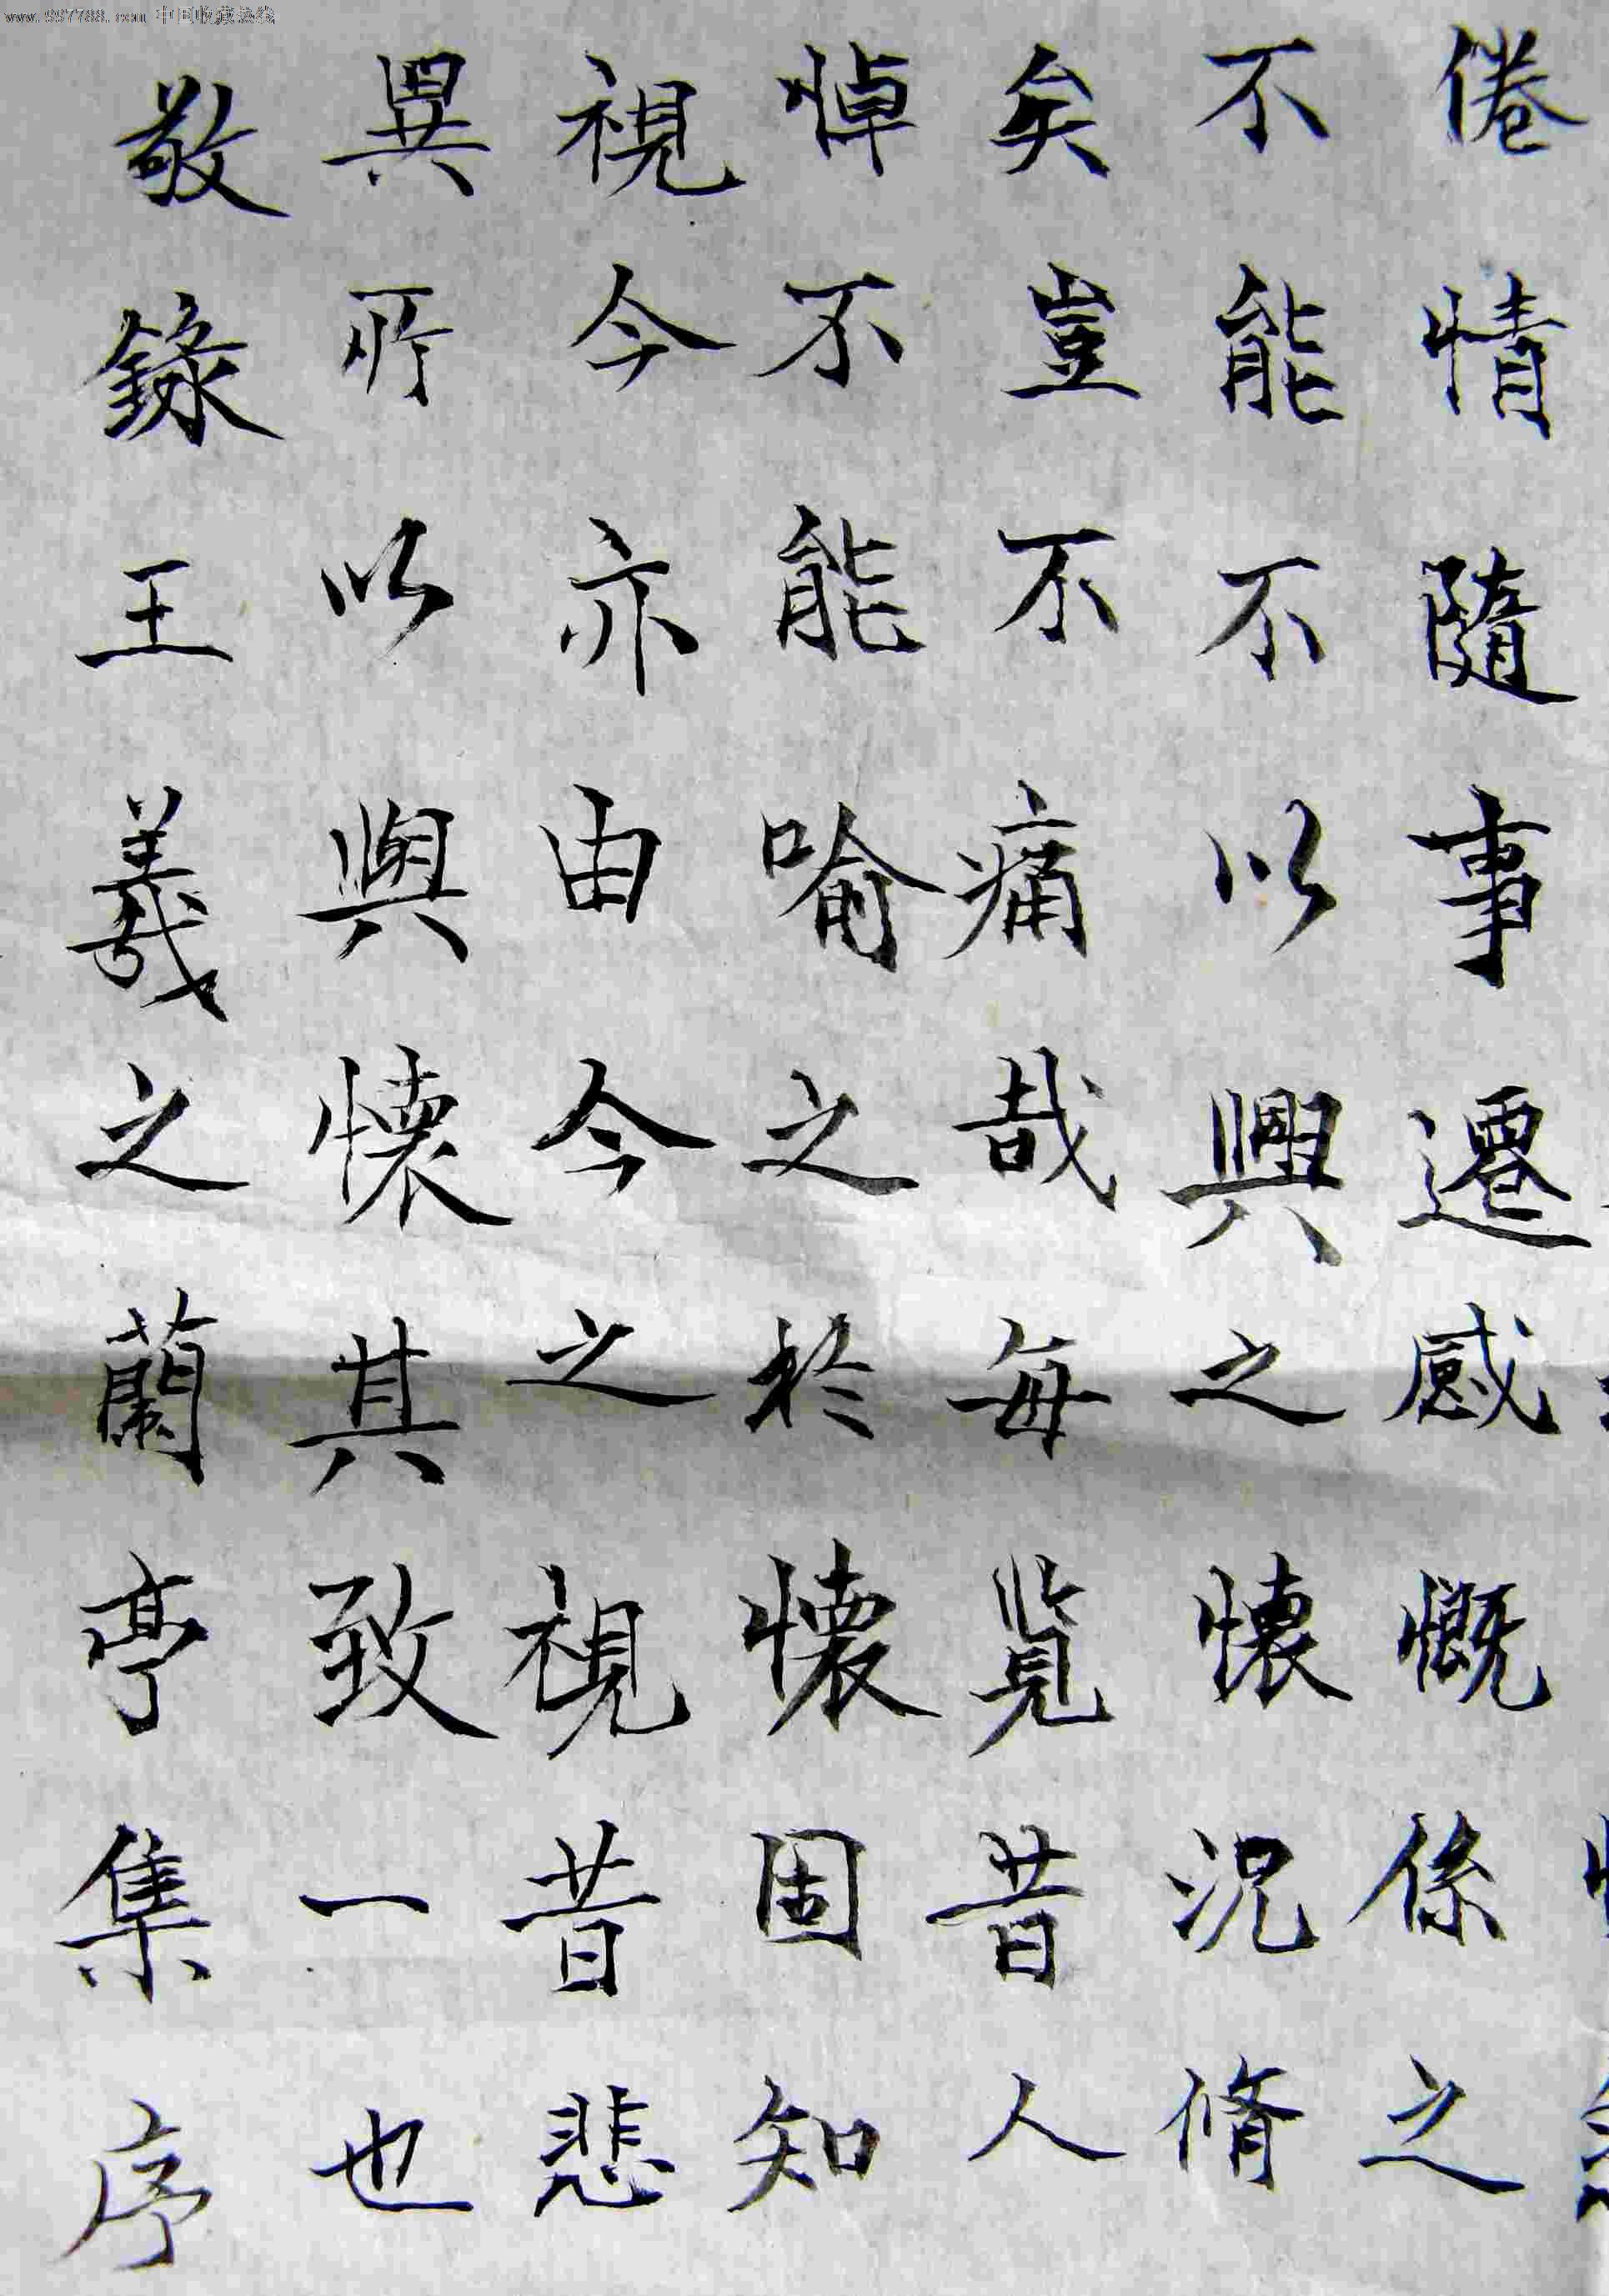 www.997788.com 中国收藏热线
倦情隨事遷感慨係之
不能不以興之懷況脩
矣豈不痛哉每覧昔人
悼不能喻之於懷固知
視今亦由今之視昔悲
異所以興懷其致一也
敬錄王羲之蘭亭集序